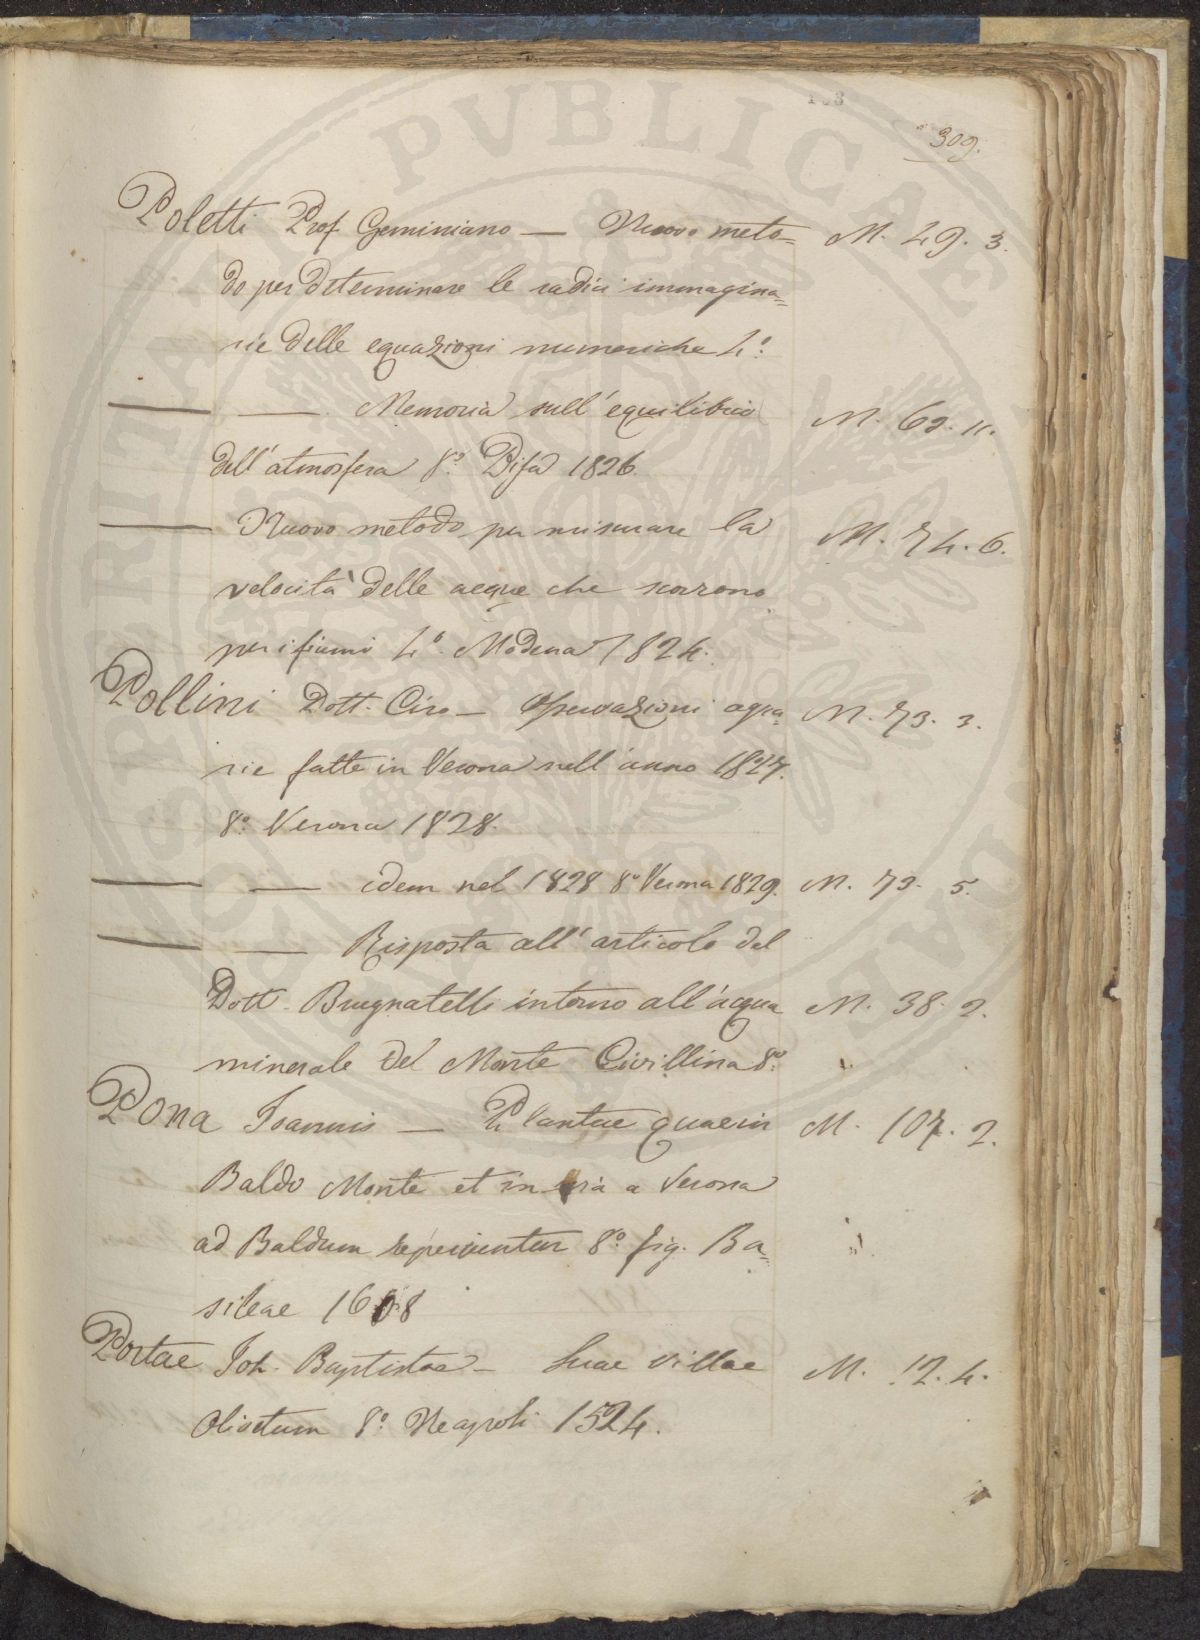 309.
Poletti Prof Geminiano — Nuovo meto= M. 49. 3.
do per determinare le radici immagina=
rie delle equazioni numeriche 4º.
— — Memoria sull'equilibrio M. 62. 11.
dell'atmosfera 8º. Pisa 1826.
— Nuovo metodo per misurare la M. 74. 6.
velocità delle acque che scorrono
per i fiumi 4º. Modena 1824.
Pollini Dott. Ciro — Osservazioni agra= M. 73. 3.
rie fatte in Verona nell'anno 1827.
8º. Verona 1828.
— — idem nel 1828 8º Verona 1829. M. 72. 5.
— — Risposta all'articolo del
Dott. Brugnatelli intorno all'acqua M. 38. 2.
minerale del Monte Civillina 8º.
Pona Joannis — Plantae quae in M. 107. 2.
Baldo Monte et in via a Verona
ad Baldum reperiuntur 8º. fig. Ba=
sileae 1608
Portae Joh. Baptistae — Suae Villae M. 12. 4.
Olivetum 8º. Neapoli 1524.